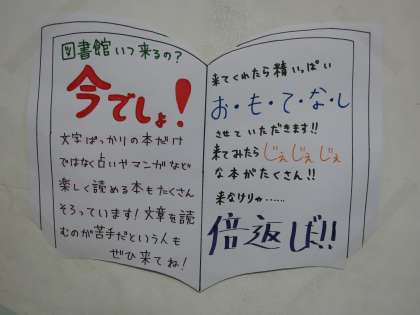 図書館いつ来るの?
今でしょ!
文字ばっかりの本だけ
ではなく占いやマンガなど
楽しく読める本もたくさん
そろっています!文章を読
むのが苦手だという人も
ぜひ来てね!
来てくれたら精いっぱい
お・も・て・な・し
させていただきます!!
来てみたらじぇじぇじぇ
な本がたくさん!!
来なけりゃ……
倍返しば!!